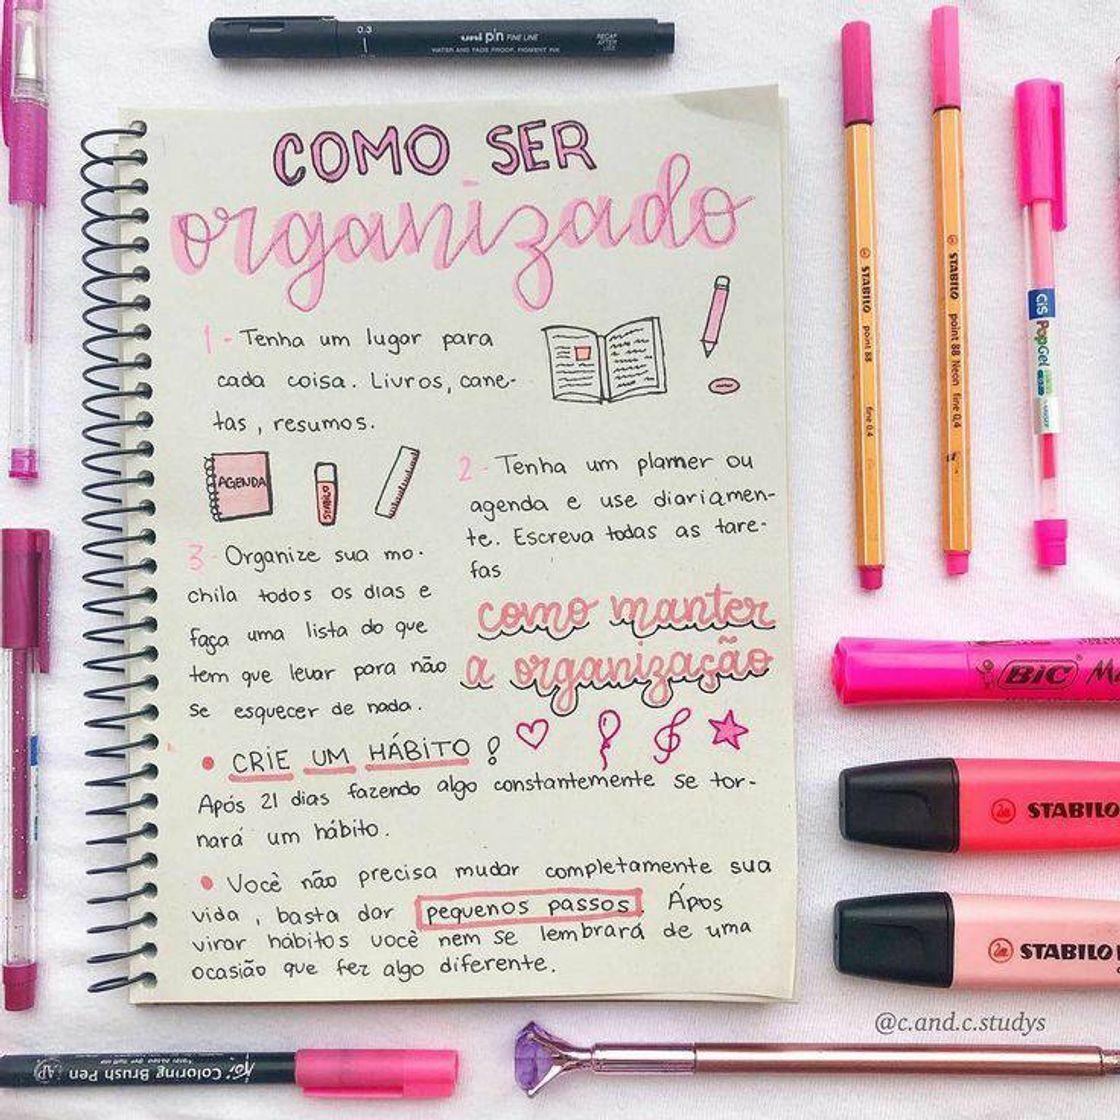 0.3
uni pin FINE LINE
WATER AND FADE PROOF, PIGMENT INK
COMO SER
organizado
1- Tenha um lugar para
cada coisa. Livros, cane-
tas, resumos.
AGENDA
STABILO
2- Tenha um planner ou
agenda e use diariamen-
te. Escreva todas as tare-
fas
3- Organize sua mo-
chila todos os dias e
faça uma lista do que
tem que levar para não
se esquecer de nada.
como manter
a organização
• CRIE UM HÁBITO !
Após 21 dias fazendo algo constantemente se tor-
nará um hábito.
• Você não precisa mudar completamente sua
vida, basta dar pequenos passos. Ápos
virar hábitos você nem se lembrará de uma
ocasião que fez algo diferente.
STABILO point 88 fine 0,4
STABILO point 88 Neon fine 0,4
CiS PopGel
BIC Ma
STABILO
STABILO
@c.and.c.studys
Coloring Brush Pen